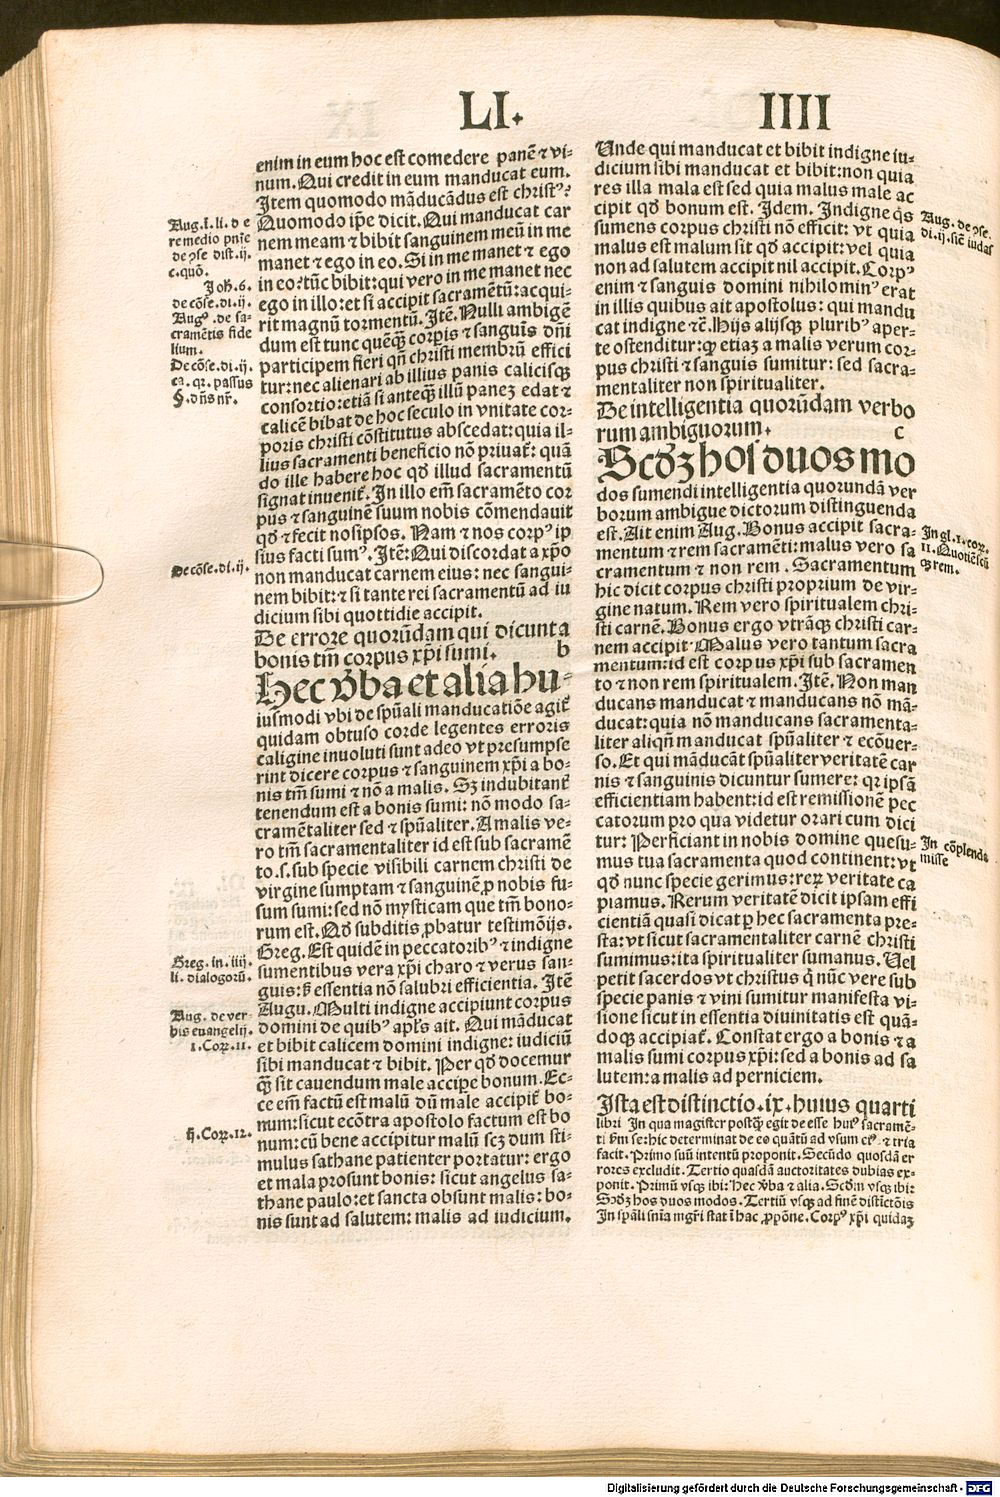 LI. IIII
enim in eum hoc est comedere panē ⁊ vi-
num. Qui credit in eum manducat eum.
Item quomodo māducādus est christꝰ?
Quomodo ip̄e dicit. Qui manducat car
nem meam ⁊ bibit sanguinem meū in me
manet ⁊ ego in eo. Si in me manet ⁊ ego
in eo: tūc bibit: qui vero in me manet nec
ego in illo: et si accipit sacramētū: acqui-
rit magnū tormentū. Itē. Nulli ambigē
dum est tunc quēqꝫ corpis ⁊ sanguis dn̄i
participem fieri qn̄ christi membrū effici
tur: nec alienari ab illius panis calicisqꝫ
consortio: etiā si anteqꝫ illū panez edat ⁊
calicē bibat de hoc seculo in vnitate cor-
poris christi cōstitutus abscedat: quia il-
lius sacramenti beneficio nō priuat̄: quā
do ille habere hoc qd̄ illud sacramentū
signat inuenit̄. In illo em̄ sacramēto cor
pus ⁊ sanguinē suum nobis cōmendauit
qd̄ ⁊ fecit nosipsos. Nam ⁊ nos corpꝰ ip
sius facti sumꝰ. Itē: Qui discordat a xp̄o
non manducat carnem eius: nec sangui-
nem bibit: ⁊ si tante rei sacramentū ad iu
dicium sibi quottidie accipit.
De errore quorūdam qui dicunt a
bonis tm̄ corpus xp̄i sumi. b
Hec v̄ba et alia hu-
iusmodi vbi de sp̄uali manducatiōe agit̄
quidam obtuso corde legentes erroris
caligine inuoluti sunt adeo vt presumpse
rint dicere corpus ⁊ sanguinem xp̄i a bo-
nis tm̄ sumi ⁊ nō a malis. Sz indubitant̄
tenendum est a bonis sumi: nō modo sa-
cramētaliter sed ⁊ sp̄ualiter. A malis ve-
ro tm̄ sacramentaliter id est sub sacramē
to. s. sub specie visibili carnem christi de
virgine sumptam ⁊ sanguinē ꝓ nobis fu-
sum sumi: sed nō mysticam que tm̄ bono-
rum est. Qd̄ subditis ꝓbatur testimōijs.
Greg. Est quidē in peccatoribꝰ ⁊ indigne
sumentibus vera xp̄i charo ⁊ verus san-
guis: s̄ essentia nō salubri efficientia. Itē
Augu. Multi indigne accipiunt corpus
domini de quibꝰ apl̄s ait. Qui māducat
et bibit calicem domini indigne: iudiciū
sibi manducat ⁊ bibit. Per qd̄ docemur
qꝫ sit cauendum male accipe bonum. Ec-
ce em̄ factū est malū dū male accipit̄ bo-
num: sicut ecōtra apostolo factum est bo
num: cū bene accipitur malū scz dum sti-
mulus sathane patienter portatur: ergo
et mala prosunt bonis: sicut angelus sa-
thane paulo: et sancta obsunt malis: bo-
nis sunt ad salutem: malis ad iudicium.
Aug. l. li. de
remedio pnie
de ↄse dist. ij.
c. quō.
Joh. 6.
de cōse. di. ij.
Augꝰ. de sa-
cramētis fide
lium.
De cōse. di. ij
ca. qr. passus
§. dn̄s nr̄.
De cōse. di. ij.
Greg. in. iiij.
li. dialogorū.
Aug. de ver-
bis euangelij.
1. Coꝝ. 11.
ij. Coꝝ. 12.
Unde qui manducat et bibit indigne iu-
dicium sibi manducat et bibit: non quia
res illa mala est sed quia malus male ac
cipit qd̄ bonum est. Idem. Indigne q̄s
sumens corpus christi nō efficit: vt quia
malus est malum sit qd̄ accipit: vel quia
non ad salutem accipit nil accipit. Corpꝰ
enim ⁊ sanguis domini nihilominꝰ erat
in illis quibus ait apostolus: qui mandu
cat indigne ⁊c̄. Hijs alijsqꝫ pluribꝰ aper-
te ostenditur: ꝙ etiaz a malis verum cor-
pus christi ⁊ sanguis sumitur: sed sacra-
mentaliter non spiritualiter.
De intelligentia quorūdam verbo
rum ambiguorum. c
Scd̄z hos duos mo
dos sumendi intelligentia quorundā ver
borum ambigue dictorum distinguenda
est. Ait enim Aug. Bonus accipit sacra-
mentum ⁊ rem sacramēti: malus vero sa
cramentum ⁊ non rem. Sacramentum
hic dicit corpus christi proprium de vir-
gine natum. Rem vero spiritualem chri-
sti carnē. Bonus ergo vtrāqꝫ christi car-
nem accipit Malus vero tantum sacra
mentum: id est corpus xp̄i sub sacramen
to ⁊ non rem spiritualem. Itē. Non man
ducans manducat ⁊ manducans nō mā-
ducat: quia nō manducans sacramenta-
liter aliqn̄ manducat sp̄ualiter ⁊ ecōuer-
so. Et qui māducāt sp̄ualiter veritatē car
nis ⁊ sanguinis dicuntur sumere: qꝛ ipsā
efficientiam habent: id est remissionē pec
catorum pro qua videtur orari cum dici
tur: Perficiant in nobis domine quesu-
mus tua sacramenta quod continent: vt
qd̄ nunc specie gerimus: reꝝ veritate ca
piamus. Rerum veritatē dicit ipsam effi
cientiā quasi dicat ꝑ hec sacramenta pre-
sta: vt sicut sacramentaliter carnē christi
sumimus: ita spiritualiter sumanus. Uel
petit sacerdos vt christus q̄ nūc vere sub
specie panis ⁊ vini sumitur manifesta vi-
sione sicut in essentia diuinitatis est quā-
doqꝫ accipiat̄. Constat ergo a bonis ⁊ a
malis sumi corpus xp̄i: sed a bonis ad sa
lutem: a malis ad perniciem.
Ista est distinctio. ix. huius quarti
libri In qua magister postqꝫ egit de esse huiꝰ sacramē-
ti s̄m se: hic determinat de eo quātū ad vsum eiꝰ. ⁊ tria
facit. Primo suū intentū proponit. Secūdo quosdā er
rores excludit. Tertio quasdā auctoritates dubias ex-
ponit. Primū vsqꝫ ibi: Hec v̄ba ⁊ alia. Scd̄m vsqꝫ ibi:
Scd̄z hos duos modos. Tertiū vsqꝫ ad finē distictōis
In sp̄ali sn̄ia mgr̄i stat ī hac ꝓpōne. Corpꝰ xp̄i quidaz
Aug. de ↄse.
di. ij. sic̄ iudas
In gl. 1. coꝝ.
11. Quotiēscū
qꝫ rem.
In cōplenda
misse
Digitalisierung gefördert durch die Deutsche Forschungsgemeinschaft - DFG